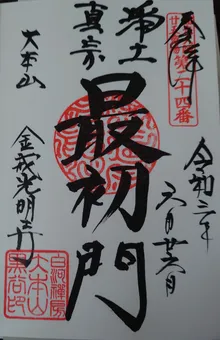 奉拝
第二十四番
淨土
真宗
最初門
令和二年
六月廿六日
大本山
金戒光明寺
白河禪房
大本山
黒谷印